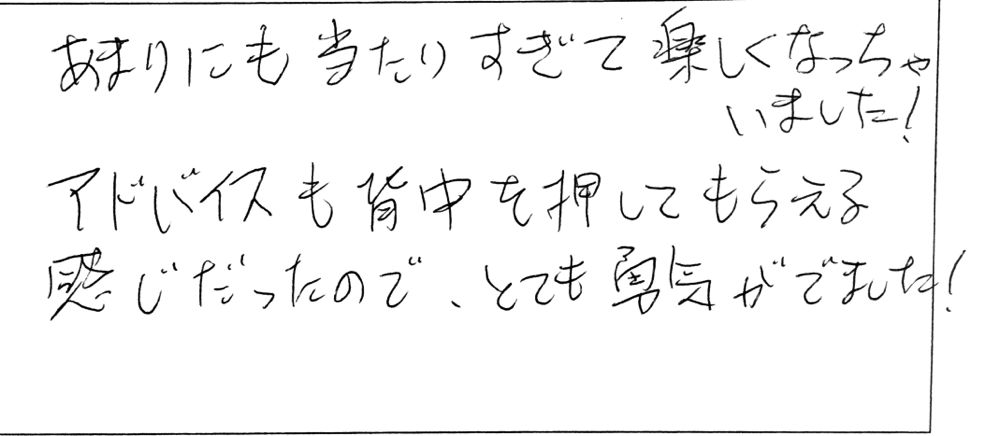 あまりにも当たりすぎて楽しくなっちゃ
いました!
アドバイスも背中を押してもらえる
感じだったので、とても勇気がでました!